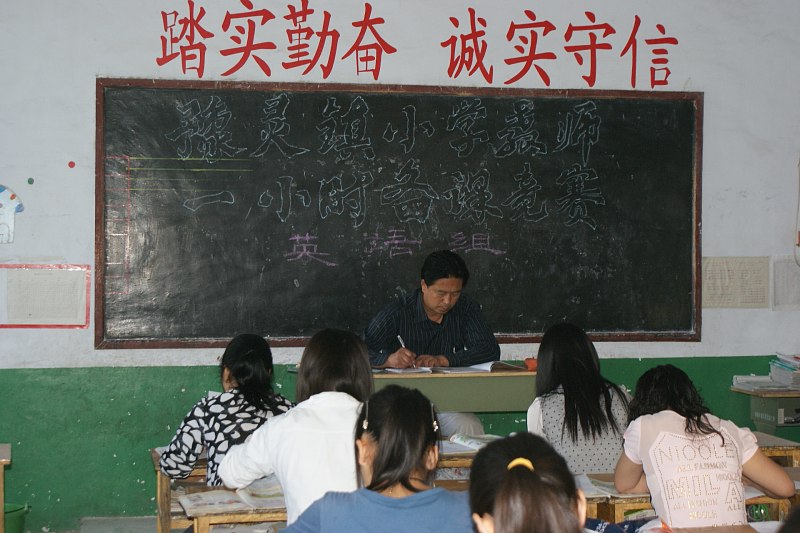 踏实勤奋 诚实守信
豫灵镇小学教师
一小时备课竞赛
英语组
NICOLE
MILA